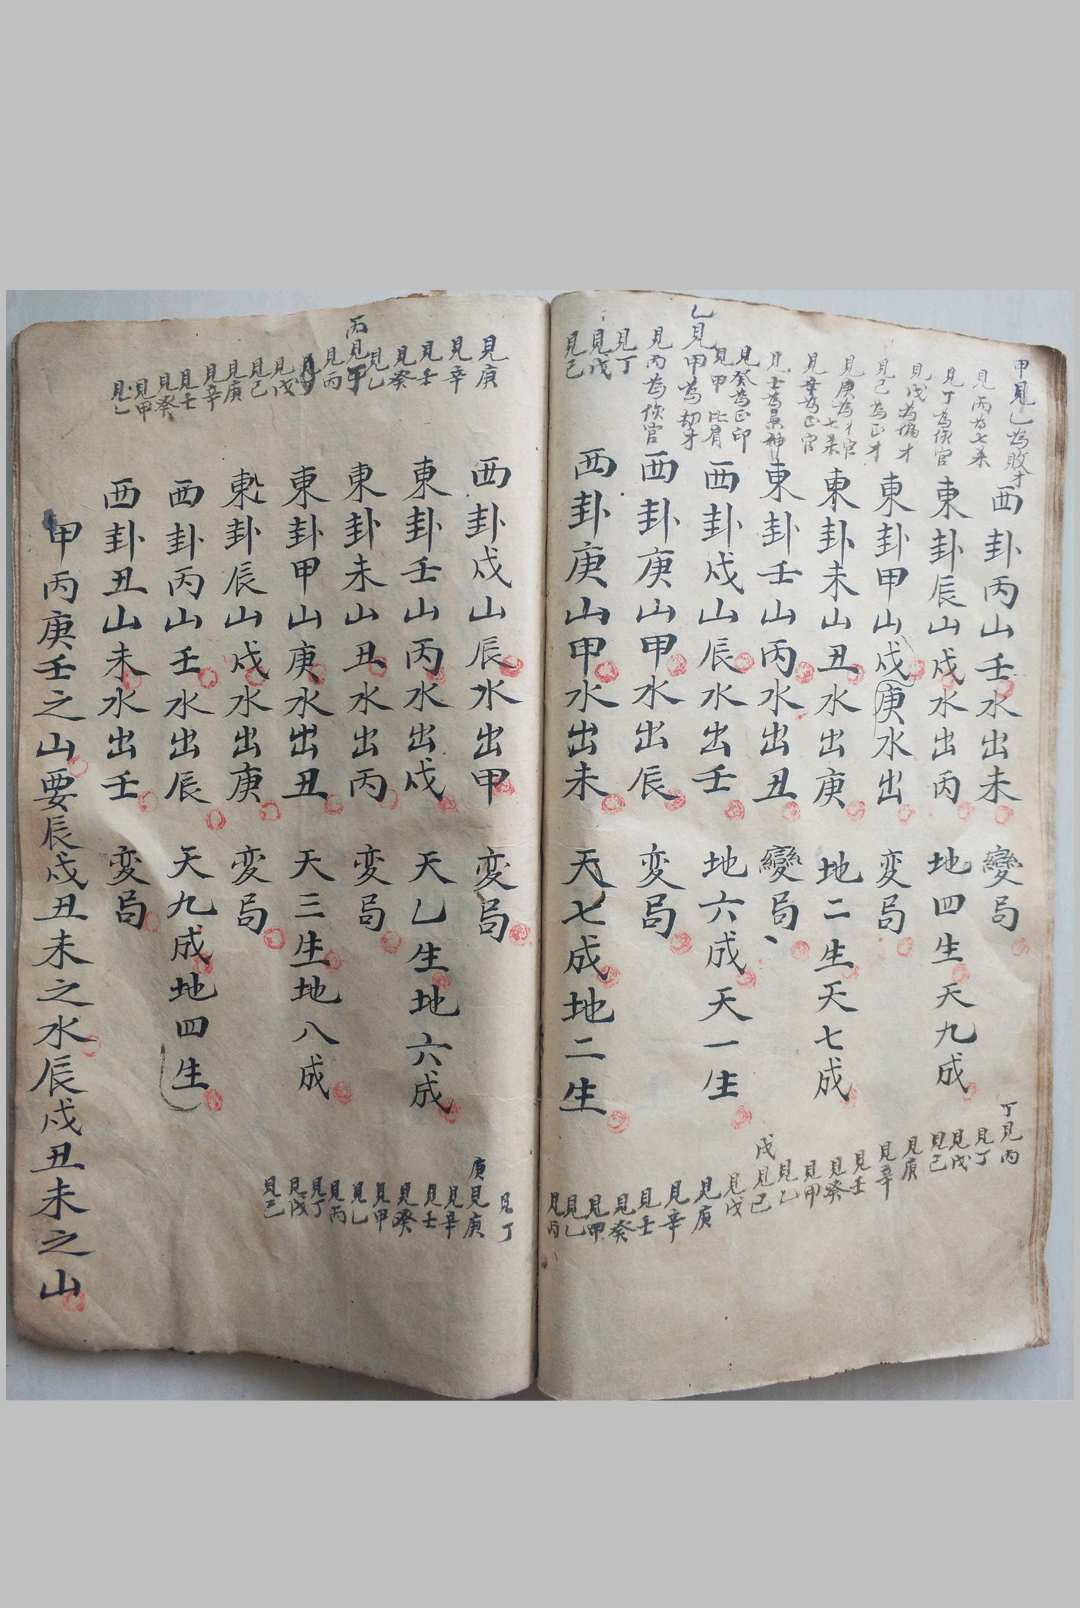 甲見乙為敗才
見丙為七杀
見丁為傷官
見戊為偏才
見己為正才
見庚為七杀
見辛為正官
見壬為梟神
見癸為正印
見甲比肩
乙見甲為劫才
見丙為傷官
見丁
見戊
見己
西卦丙山壬水出未 變局
東卦辰山戌水出丙 地四生天九成
東卦甲山戌庚水出 变局
東卦未山丑水出庚 地二生天七成
東卦壬山丙水出丑 變局
西卦戌山辰水出壬 地六成天一生
西卦庚山甲水出辰 変局
西卦庚山甲水出未 天七成地二生
丁見丙
見丁
見戊
見己
見庚
見辛
見壬
見癸
見甲
見乙
戊見己
見戊
見庚
見辛
見壬
見癸
見甲
見乙
見丙
見庚
見辛
見壬
見癸
見乙
丙見
見丙
見戊
見己
見庚
見辛
見壬
見癸
見甲
見乙
西卦戌山辰水出甲 変局
東卦壬山丙水出戌 天乙生地六成
東卦未山丑水出丙 変局
東卦甲山庚水出丑 天三生地八成
東卦辰山戌水出庚 変局
西卦丙山壬水出辰 天九成地四生
西卦丑山未水出壬 変局
甲丙庚壬之山要辰戌丑未之水辰戌丑未之山
見丁
庚見庚
見辛
見壬
見癸
見甲
見乙
見丙
見丁
見戊
見己